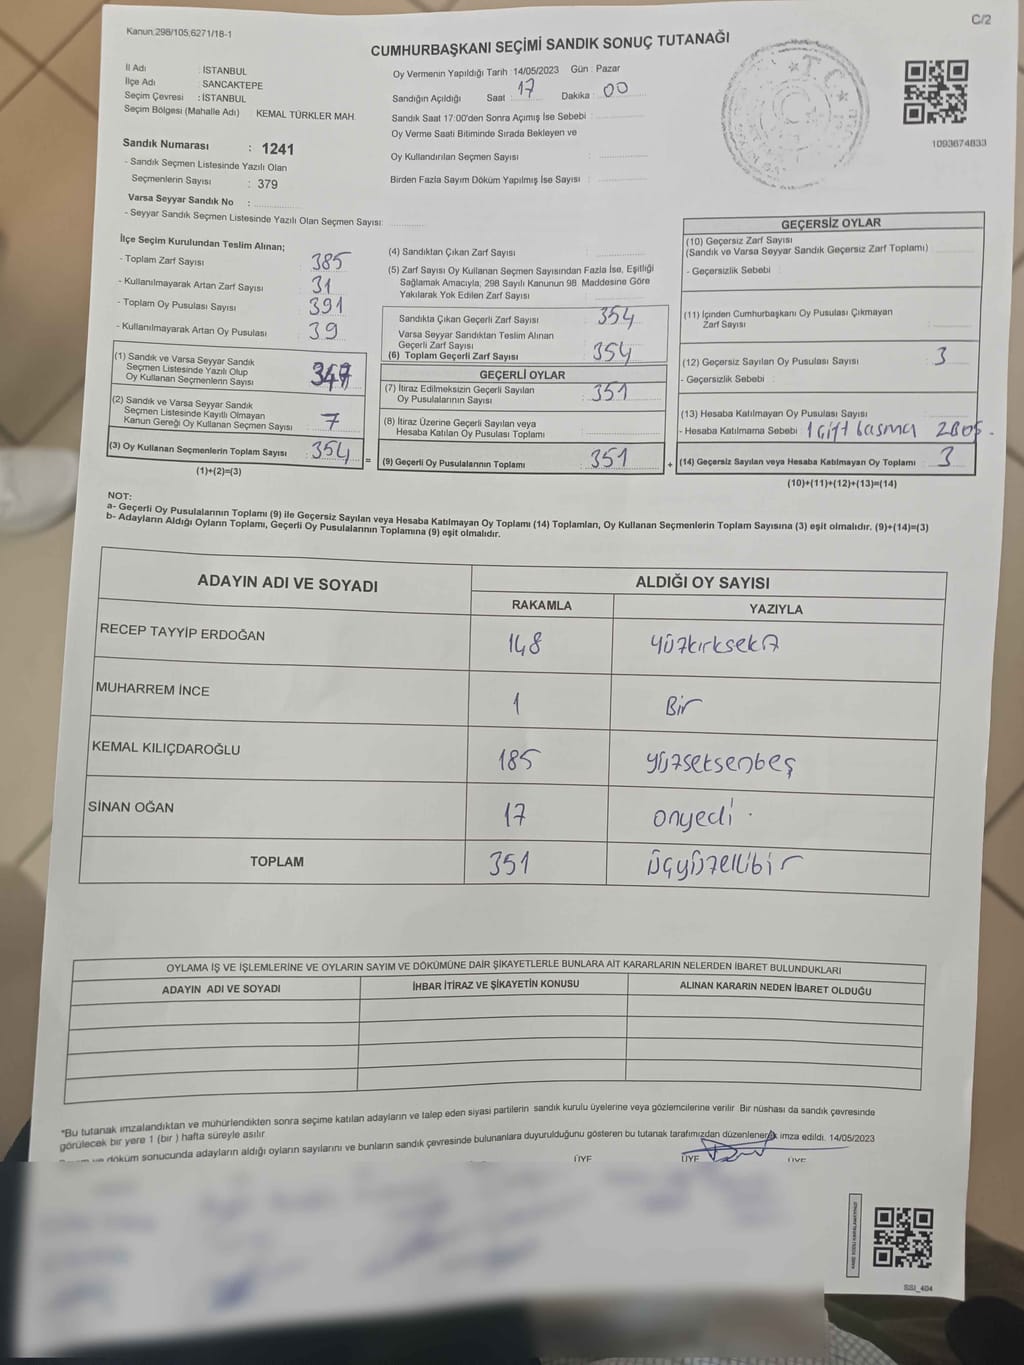 C/2
Kanun;298/105,6271/18-1
CUMHURBAŞKANI SEÇİMİ SANDIK SONUÇ TUTANAĞI
İl Adı : İSTANBUL
İlçe Adı : SANCAKTEPE
Seçim Çevresi : İSTANBUL
Seçim Bölgesi (Mahalle Adı) KEMAL TÜRKLER MAH.
Sandık Numarası : 1241
- Sandık Seçmen Listesinde Yazılı Olan
Seçmenlerin Sayısı : 379
Varsa Seyyar Sandık No :
- Seyyar Sandık Seçmen Listesinde Yazılı Olan Seçmen Sayısı:
Oy Vermenin Yapıldığı Tarih :14/05/2023 Gün : Pazar
Sandığın Açıldığı Saat : 17 Dakika : 00
Sandık Saat 17:00'den Sonra Açımış İse Sebebi :
Oy Verme Saati Bitiminde Sırada Bekleyen ve
Oy Kullandırılan Seçmen Sayısı :
Birden Fazla Sayım Döküm Yapılmış İse Sayısı :
T.C.
1093674833
İlçe Seçim Kurulundan Teslim Alınan;
- Toplam Zarf Sayısı : 385
- Kullanılmayarak Artan Zarf Sayısı : 31
- Toplam Oy Pusulası Sayısı : 391
- Kullanılmayarak Artan Oy Pusulası : 39
(1) Sandık ve Varsa Seyyar Sandık
Seçmen Listesinde Yazılı Olup
Oy Kullanan Seçmenlerin Sayısı : 347
(2) Sandık ve Varsa Seyyar Sandık
Seçmen Listesinde Kayıtlı Olmayan
Kanun Gereği Oy Kullanan Seçmen Sayısı : 7
(3) Oy Kullanan Seçmenlerin Toplam Sayısı : 354
(1)+(2)=(3)
(4) Sandıktan Çıkan Zarf Sayısı :
(5) Zarf Sayısı Oy Kullanan Seçmen Sayısından Fazla İse, Eşitliği
Sağlamak Amacıyla, 298 Sayılı Kanunun 98 Maddesine Göre
Yakılarak Yok Edilen Zarf Sayısı :
Sandıkta Çıkan Geçerli Zarf Sayısı : 354
Varsa Seyyar Sandıktan Teslim Alınan
Geçerli Zarf Sayısı :
(6) Toplam Geçerli Zarf Sayısı : 354
GEÇERLİ OYLAR
(7) İtiraz Edilmeksizin Geçerli Sayılan
Oy Pusulalarının Sayısı : 351
(8) İtiraz Üzerine Geçerli Sayılan veya
Hesaba Katılan Oy Pusulası Toplamı :
= (9) Geçerli Oy Pusulalarının Toplamı : 351
GEÇERSİZ OYLAR
(10) Geçersiz Zarf Sayısı
(Sandık ve Varsa Seyyar Sandık Geçersiz Zarf Toplamı) :
- Geçersizlik Sebebi :
(11) İçinden Cumhurbaşkanı Oy Pusulası Çıkmayan
Zarf Sayısı :
(12) Geçersiz Sayılan Oy Pusulası Sayısı : 3
- Geçersizlik Sebebi :
(13) Hesaba Katılmayan Oy Pusulası Sayısı :
- Hesaba Katılmama Sebebi : 1 Çift basma 2Boş.
+ (14) Geçersiz Sayılan veya Hesaba Katılmayan Oy Toplamı : 3
(10)+(11)+(12)+(13)=(14)
NOT:
a- Geçerli Oy Pusulalarının Toplamı (9) ile Geçersiz Sayılan veya Hesaba Katılmayan Oy Toplamı (14) Toplamları, Oy Kullanan Seçmenlerin Toplam Sayısına (3) eşit olmalıdır. (9)+(14)=(3)
b- Adayların Aldığı Oyların Toplamı, Geçerli Oy Pusulalarının Toplamına (9) eşit olmalıdır.
ADAYIN ADI VE SOYADI
ALDIĞI OY SAYISI
RAKAMLA YAZIYLA
RECEP TAYYİP ERDOĞAN 148 yüzkırksekiz
MUHARREM İNCE 1 Bir
KEMAL KILIÇDAROĞLU 185 yüzsetsenbeş
SİNAN OĞAN 17 onyedi .
TOPLAM 351 üçyüzellibir
OYLAMA İŞ VE İŞLEMLERİNE VE OYLARIN SAYIM VE DÖKÜMÜNE DAİR ŞİKAYETLERLE BUNLARA AİT KARARLARIN NELERDEN İBARET BULUNDUKLARI
ADAYIN ADI VE SOYADI İHBAR İTİRAZ VE ŞİKAYETİN KONUSU ALINAN KARARIN NEDEN İBARET OLDUĞU
*Bu tutanak imzalandıktan ve mühürlendikten sonra seçime katılan adayların ve talep eden siyasi partilerin sandık kurulu üyelerine veya gözlemcilerine verilir. Bir nüshası da sandık çevresinde
görülecek bir yere 1 (bir ) hafta süreyle asılır.
ve döküm sonucunda adayların aldığı oyların sayılarını ve bunların sandık çevresinde bulunanlara duyurulduğunu gösteren bu tutanak tarafımızdan düzenlenerek imza edildi. 14/05/2023
ÜYE ÜYE ÜYE
SSI_404